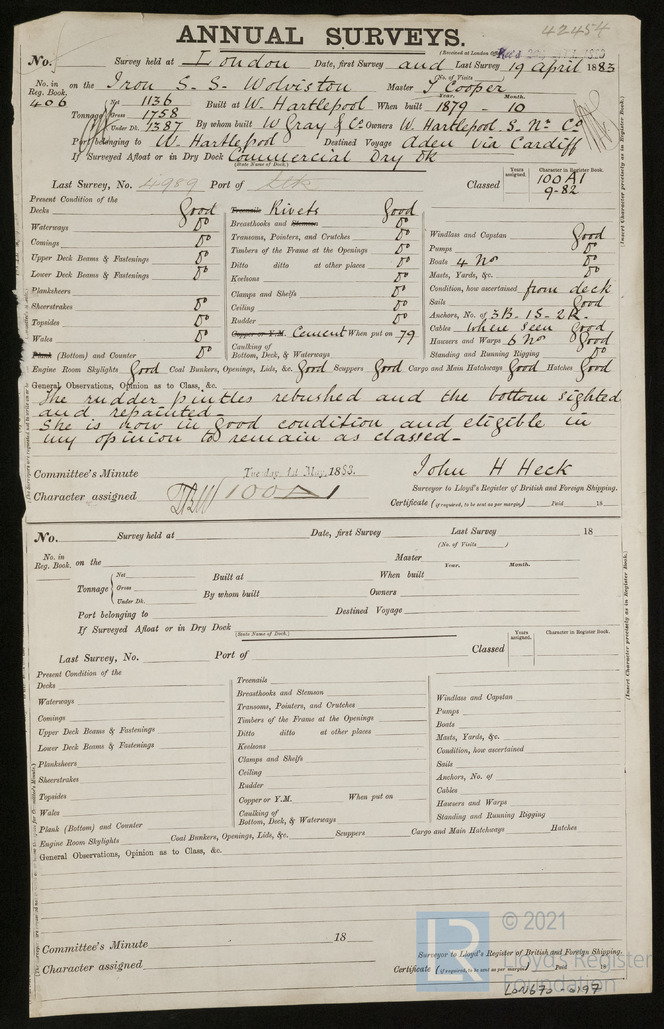 42454
ANNUAL SURVEYS.
(Received at London Office
No. Survey held at London Date, first Survey and Last Survey 19 April 1883
(No. of Visits )
No. in Reg. Book. on the Iron S.S. Wolviston Master T Cooper
406 Tonnage Net 1136 Built at W. Hartlepool When built Year. 1879 - Month. 10
Gross 1758
Under Dk. 1387 By whom built W Gray & Co Owners W. Hartlepool S. Nn Co
Port belonging to W. Hartlepool Destined Voyage Aden via Cardiff
If Surveyed Afloat or in Dry Dock Commercial Dry Dk
(State Name of Dock.)
Last Survey, No. 4989 Port of Classed Years assigned. Character in Register Book. 100A1
9-82
(Insert Character precisely as in Register Book.)
Present Condition of the
Decks Good Treenails Rivets Good
Waterways Do Breasthooks and Stemson Do Windlass and Capstan Good
Comings Do Transoms, Pointers, and Crutches Do Pumps Do
Upper Deck Beams & Fastenings Do Timbers of the Frame at the Openings Do Boats 4 No Do
Lower Deck Beams & Fastenings Do Ditto ditto at other places Do Masts, Yards, &c. Do
Planksheers Keelsons Do Condition, how ascertained from deck
Sheerstrakes Do Clamps and Shelfs Do Sails Good
Topsides Do Ceiling Do Anchors, No. of 3B. 1S - 2K.
Wales Do Rudder Do Cables where seen Good
Plank (Bottom) and Counter Do Copper or Y.M. Cement When put on 79 Hawsers and Warps 6 No Good
Caulking of Bottom, Deck, & Waterways Standing and Running Rigging Do
Engine Room Skylights Good Coal Bunkers, Openings, Lids, &c. Good Scuppers Good Cargo and Main Hatchways Good Hatches Good
General Observations, Opinion as to Class, &c.
The rudder pintles rebushed and the bottom sighted
and repainted -
She is now in good condition and eligible in
my opinion to remain as classed -
Committee's Minute Tuesday, 1st May, 1883. John H Heck
Character assigned 100A1 Surveyor to Lloyd's Register of British and Foreign Shipping.
Certificate (if required, to be sent as per margin) Paid 18
No. Survey held at Date, first Survey Last Survey 18
(No. of Visits )
No. in Reg. Book. on the Master
Tonnage Net Built at When built Year. Month.
Gross
Under Dk. By whom built Owners
Port belonging to Destined Voyage
If Surveyed Afloat or in Dry Dock
(State Name of Dock.)
Last Survey, No. Port of Classed Years assigned. Character in Register Book.
(Insert Character precisely as in Register Book.)
Present Condition of the
Decks Treenails
Waterways Breasthooks and Stemson Windlass and Capstan
Comings Transoms, Pointers, and Crutches Pumps
Upper Deck Beams & Fastenings Timbers of the Frame at the Openings Boats
Lower Deck Beams & Fastenings Ditto ditto at other places Masts, Yards, &c.
Planksheers Keelsons Condition, how ascertained
Sheerstrakes Clamps and Shelfs Sails
Topsides Ceiling Anchors, No. of
Wales Rudder Cables
Plank (Bottom) and Counter Copper or Y.M. When put on Hawsers and Warps
Caulking of Bottom, Deck, & Waterways Standing and Running Rigging
Engine Room Skylights Coal Bunkers, Openings, Lids, &c. Scuppers Cargo and Main Hatchways Hatches
General Observations, Opinion as to Class, &c.
Committee's Minute 18
Character assigned Surveyor to Lloyd's Register of British and Foreign Shipping.
Certificate (if required, to be sent as per margin) Paid 18
© 2021
LR Lloyd's Register
Foundation
LON670-0197